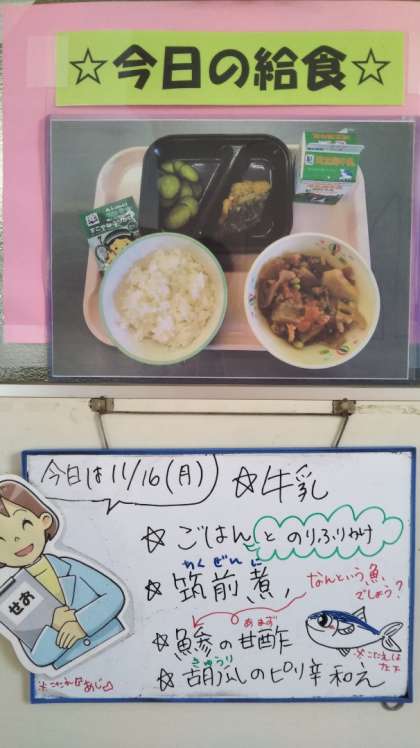 ☆今日の給食☆
今日は11/16(月)
☆牛乳
☆ごはんとのりふりかけ
ちくぜんに
☆筑前煮
なんという魚でしょう?
あまず
☆鯵の甘酢
きゅうり
☆胡瓜のピリ辛和え
※こたえは左下
※こたえはあじ